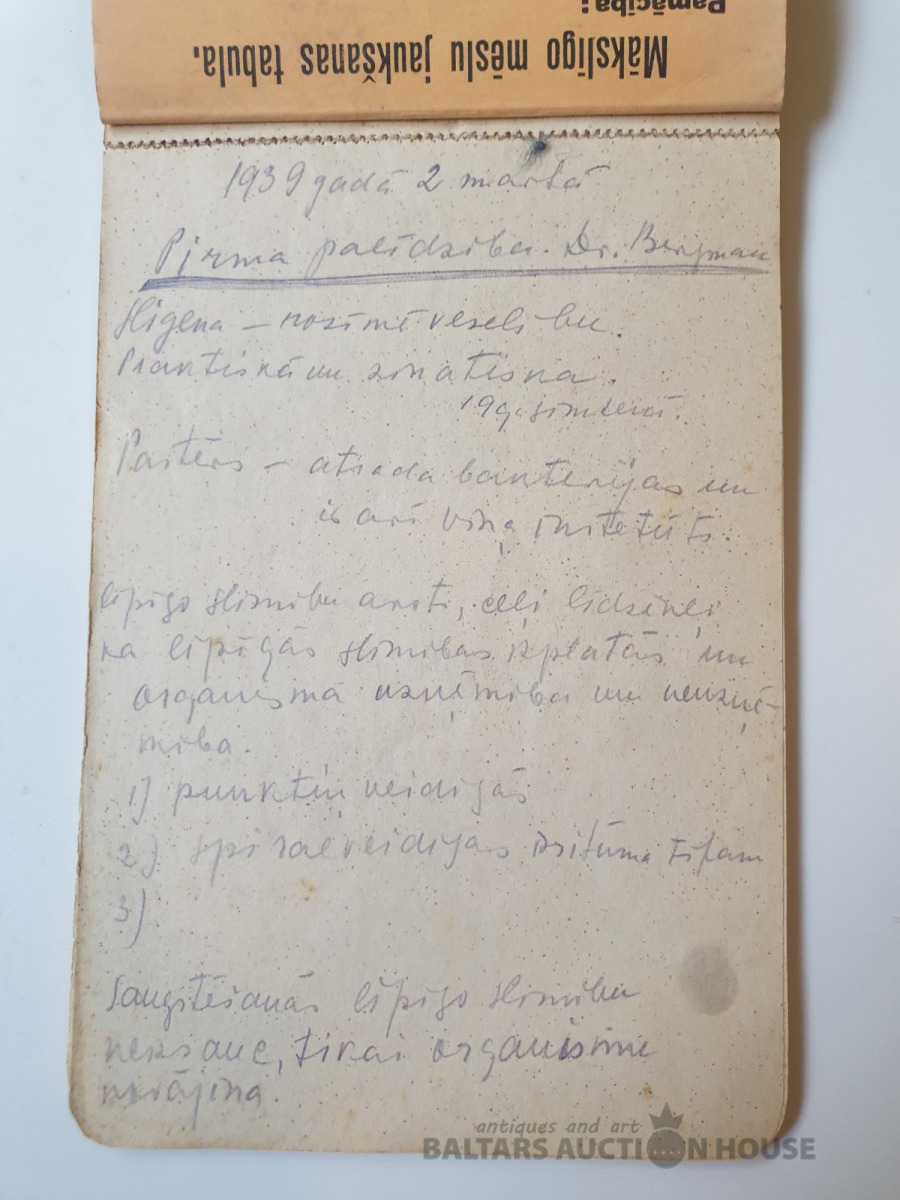 Pamācība:
Mākslīgo mēslu jaukšanas tabula.
1939 gadā 2 martā
Pirma palīdzība. Dr. Bergman
Higena – nozīmē veselību.
Praktiskā un zinatiska.
19 g. simtenī.
Pastērs – atrada bakterijas un
ir arī viņa institūts.
lipīgo slimību avoti, ceļi līdzekļi
ka lipīgās slimības izplatās un
organismā uzņēmība un neuzņē-
miba.
1) punktiņveidigās
2) spiralveidigas tifam
3)
lipīgo slimību
tikai organismu
norūjina.
antiques and art
BALTARS AUCTION HOUSE